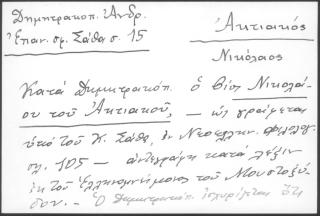 Δημητρακοπ. Ἀνδρ.
Ἐπαν. σ. Σάθα σ. 15
Ἀκτιακός
Νικόλαος
Κατά Δημητρακόπ. ὁ βίος Νικολά-
ου τοῦ Ἀκτιακοῦ, — ὡς γράφεται
ὑπό τοῦ Κ. Σάθα, ἐν Νεοελλην. Φιλολογ.
σλ. 105 — ἀντεγράφη κατά λέξιν
ἐκ τοῦ Ἑλληνομνήμονος τοῦ Μουστοξύ-
δου. — Ὁ Δημητρακόπ. ἰσχυρίζεται ὅτι